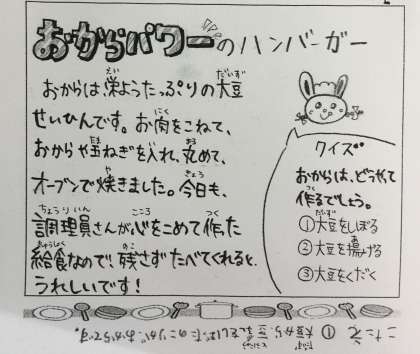 おからパワーのハンバーガー
おからは、栄ようたっぷりの大豆
せいひんです。お肉をこねて、
おからや玉ねぎを入れ、丸めて、
オーブンで焼きました。今日も、
調理員さんが心をこめて作った
給食なので、残さずたべてくれると、
うれしいです！
クイズ
おからは、どうやって
作るでしょう。
①大豆をしぼる
②大豆を揚げる
③大豆をくだく
こたえ ① 大豆から、をしぼったのこりが、おからです。